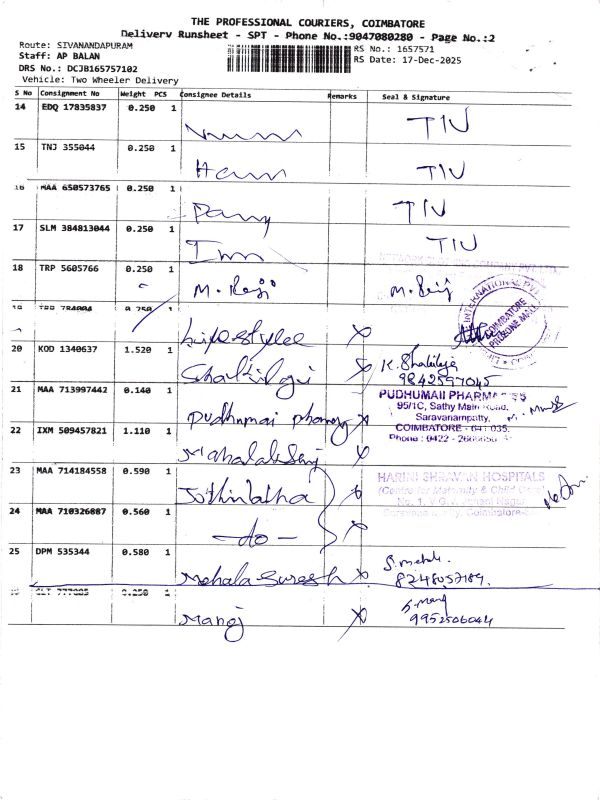 THE PROFESSIONAL COURIERS, COIMBATORE
Delivery Runsheet - SPT - Phone No.:9047080280 - Page No.:2
Route: SIVANANDAPURAM
RS No.: 1657571
Staff: AP BALAN
RS Date: 17-Dec-2025
DRS No.: DCJB165757102
Vehicle: Two Wheeler Delivery
S No Consignment No Weight PCS Consignee Details Remarks Seal & Signature
14 EDQ 17835837 0.250 1
TIV
15 TNJ 355044 0.250 1
TIV
16 MAA 650573765 0.250 1
TIV
17 SLM 384813044 0.250 1
TIV
18 TRP 5605766 0.250 1
M. Reji M. Reji
INTERNATIONAL PVT
COIMBATORE
PROZONE MALL
19 TRP 784004 0.250 1
Lifestylee
20 KOD 1340637 1.520 1
K. Shakilya
9842597045
21 MAA 713997442 0.140 1
PUDHUMAII PHARMACIES
95/1C, Sathy Main Road,
Saravanampatty,
COIMBATORE - 641 035.
Phone : 0422 -
pudhumai pharmacy
22 IXM 509457821 1.110 1
23 MAA 714184558 0.590 1
Jothinlatha
HARINI SHRAVAN HOSPITALS
(Centre for Maternity & Child Care)
24 MAA 710326087 0.560 1
- do -
25 DPM 535344 0.580 1
Mehala Suresh
S. Mehala
8248057189.
0.250 1
Manoj
S. Manoj
9952506044